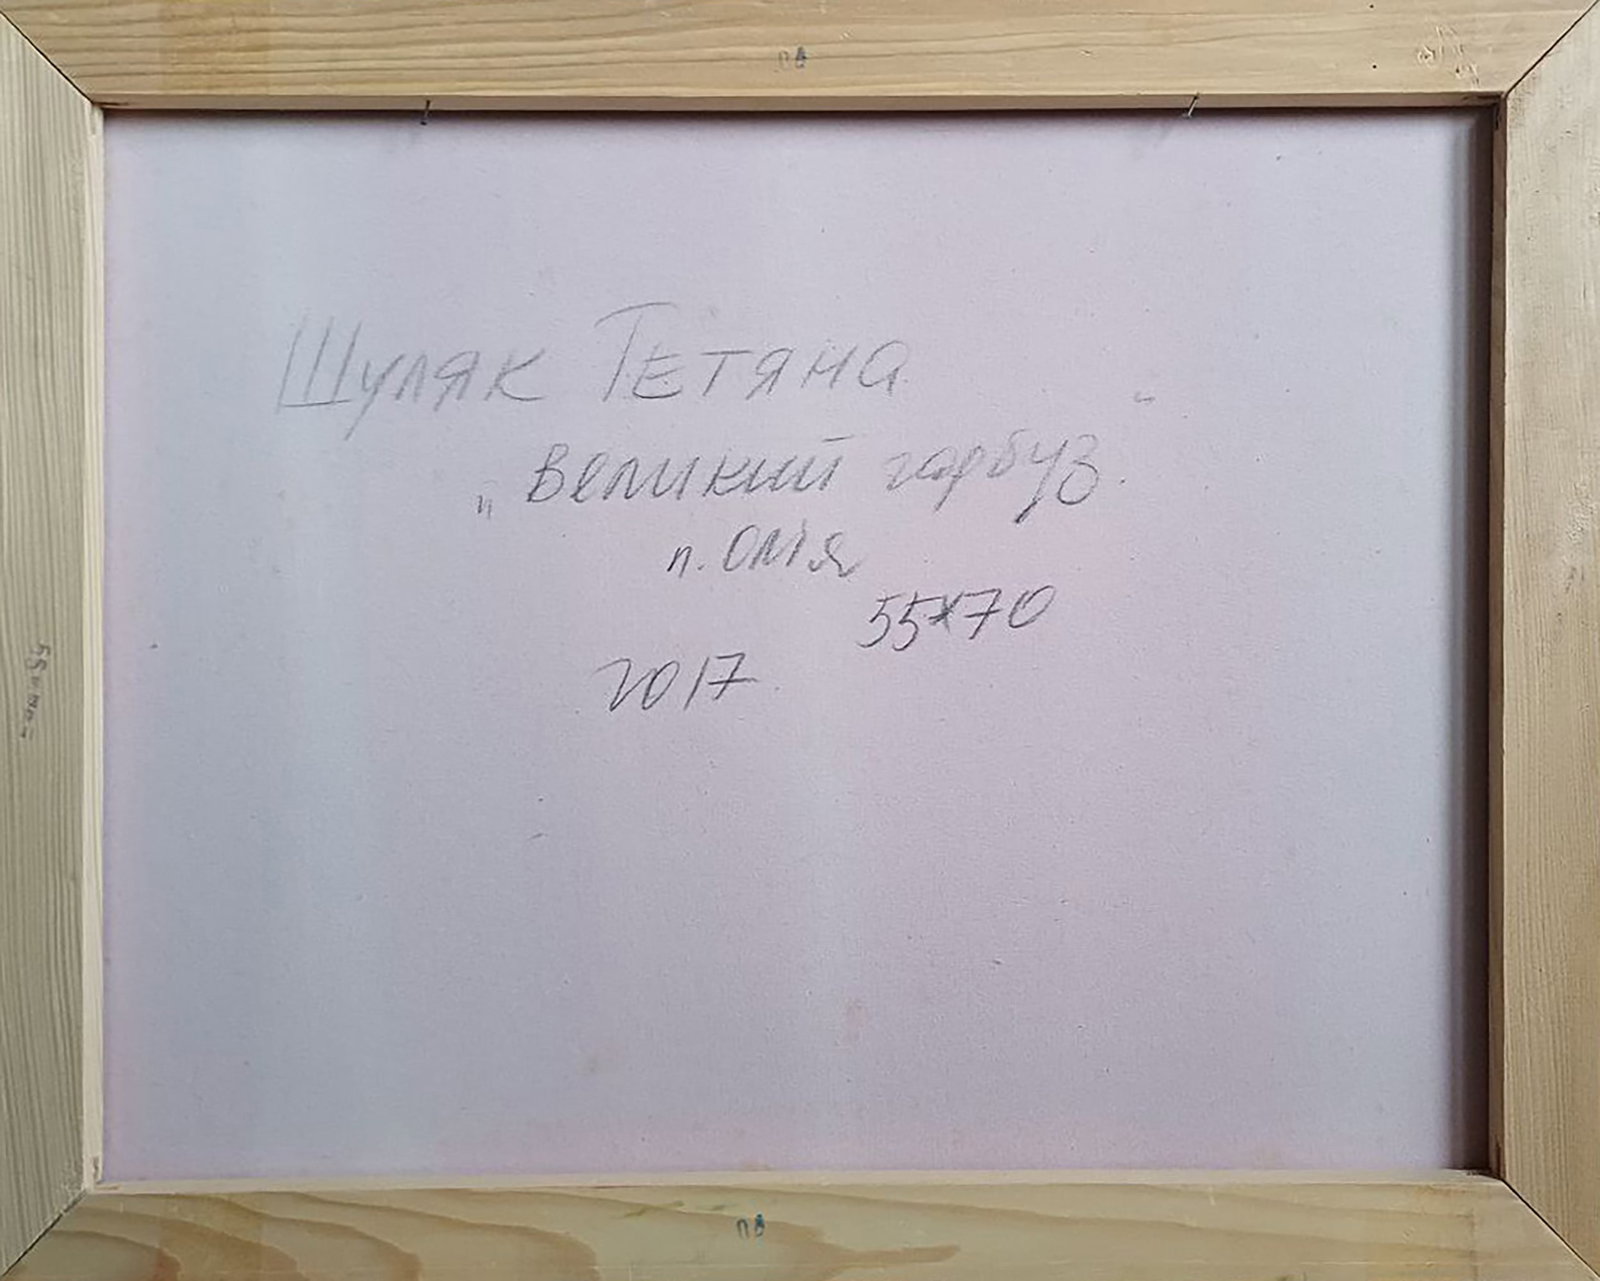 Шуляк Тетяна
„Великий гарбуз"
п. олія
55x70
2017
пв